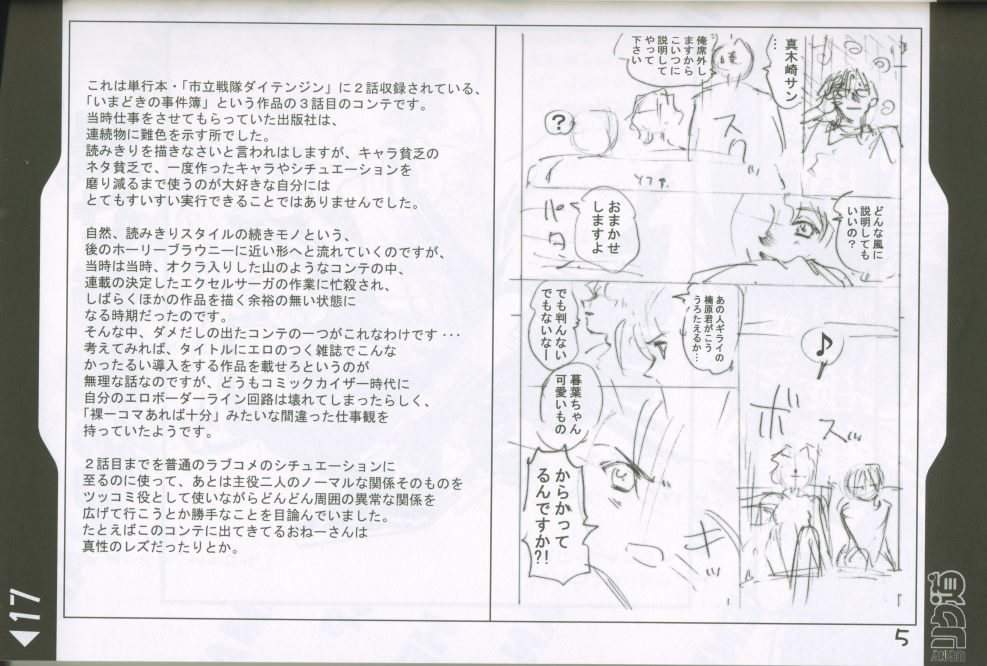 これは単行本・「市立戦隊ダイテンジン」に２話収録されている、
「いまどきの事件簿」という作品の３話目のコンテです。
当時仕事をさせてもらっていた出版社は、
連続物に難色を示す所でした。
読みきりを描きなさいと言われはしますが、キャラ貧乏の
ネタ貧乏で、一度作ったキャラやシチュエーションを
磨り減るまで使うのが大好きな自分には
とてもすいすい実行できることではありませんでした。
自然、読みきりスタイルの続きモノという、
後のホーリーブラウニーに近い形へと流れていくのですが、
当時は当時、オクラ入りした山のようなコンテの中、
連載の決定したエクセルサーガの作業に忙殺され、
しばらくほかの作品を描く余裕の無い状態に
なる時期だったのです。
そんな中、ダメだしの出たコンテの一つがこれなわけです・・・
考えてみれば、タイトルにエロのつく雑誌でこんな
かったるい導入をする作品を載せろというのが
無理な話なのですが、どうもコミックカイザー時代に
自分のエロボーダーライン回路は壊れてしまったらしく、
「裸一コマあれば十分」みたいな間違った仕事観を
持っていたようです。
２話目までを普通のラブコメのシチュエーションに
至るのに使って、あとは主役二人のノーマルな関係そのものを
ツッコミ役として使いながらどんどん周囲の異常な関係を
広げて行こうとか勝手なことを目論んでいました。
たとえばこのコンテに出てきてるおねーさんは
真性のレズだったりとか。
真木崎サン
…
俺席外し
ますから
こいつに
説明して
やって
下さい
スク
?
ソファ
どんな風に
説明しても
いいの？
おまかせ
しますよ
パタン
♪
ボスッ
あの人ギライの
楠原君がこう
うろたえるか…
でも判んない
でもないなー
暮葉ちゃん
可愛いもの
からかって
るんですか?!
キッ
17
5